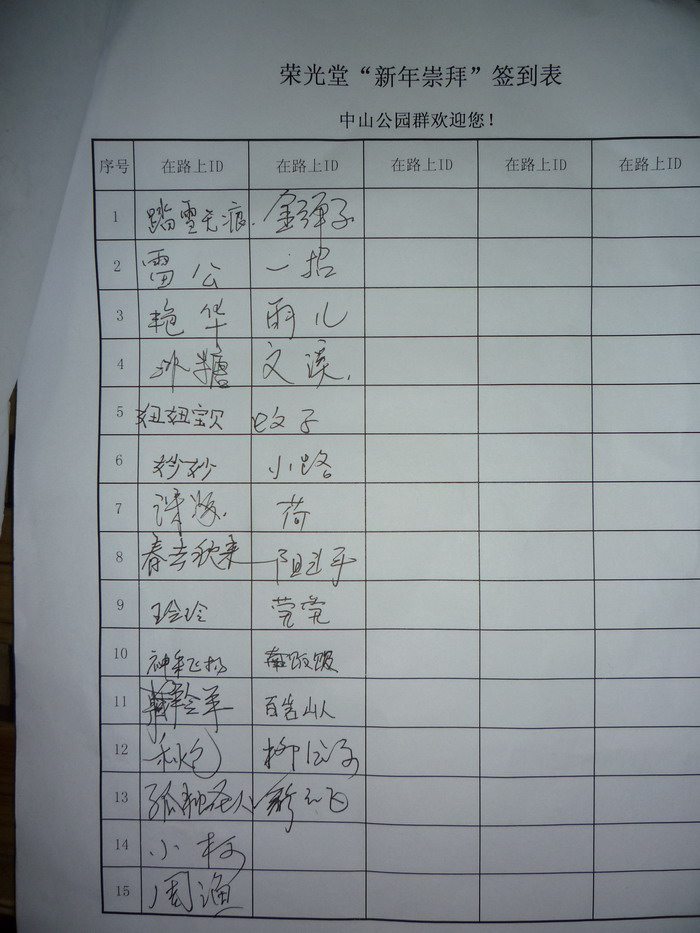 荣光堂“新年崇拜”签到表
中山公园群欢迎您！
序号 在路上ID 在路上ID 在路上ID 在路上ID 在路上ID
1 踏雪无痕. 金弹子
2 雷公 一招
3 艳华 雨儿
4 冰糖 文溪.
5 妞妞宝贝 蚊子
6 妙妙 小路
7 荷
8 春去秋来
9 玲玲
10 神采飞扬
11 百善山人
12 柳公子
13
14 小柯
15 周渔